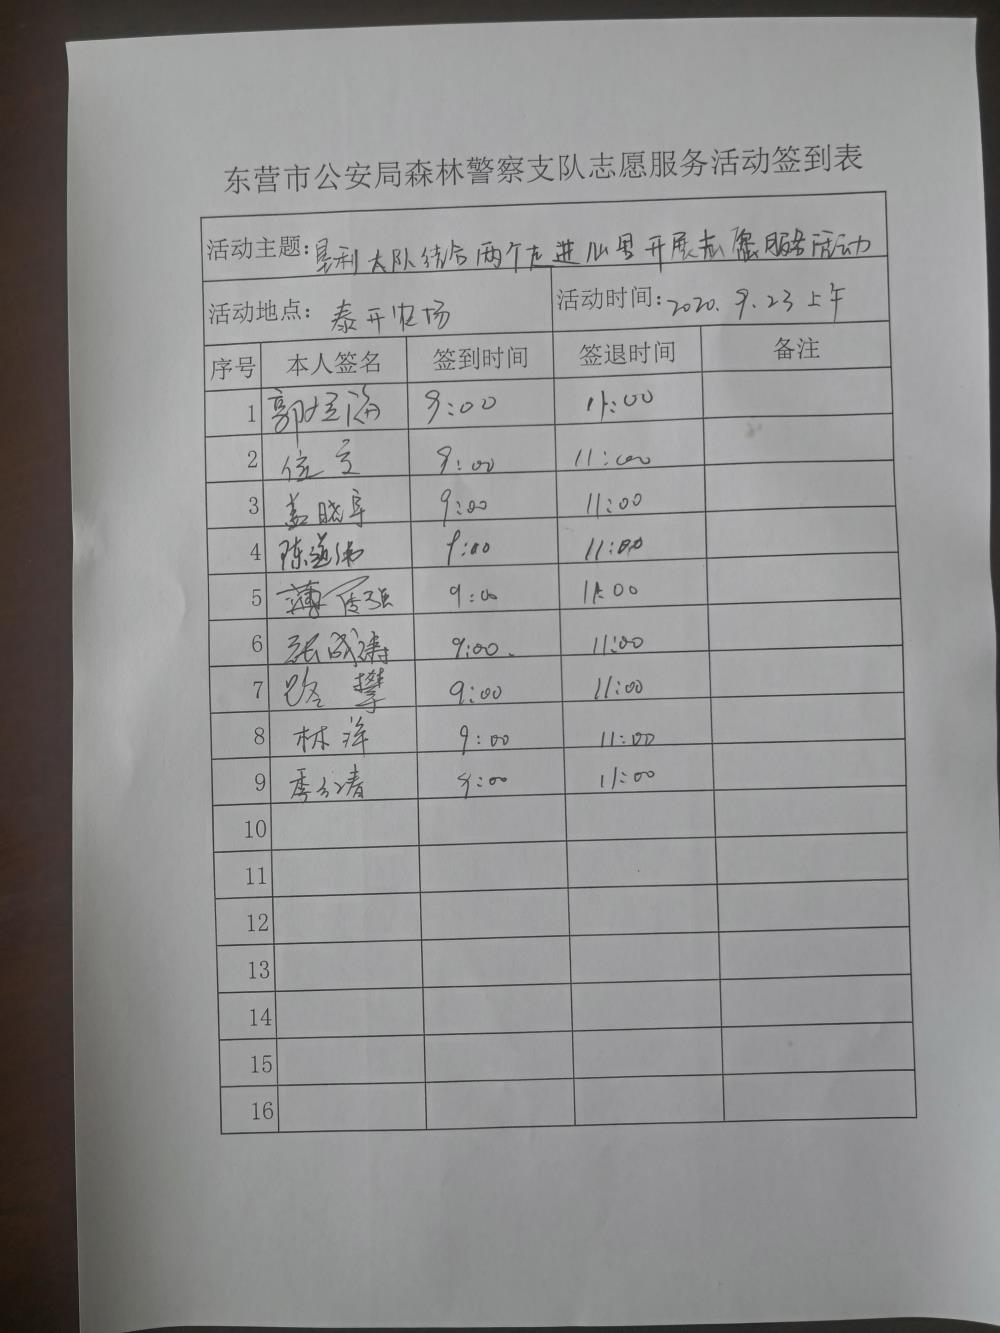 东营市公安局森林警察支队志愿服务活动签到表
活动主题:垦利大队结合两个走进 开展志愿服务活动
活动地点: 泰开农场 活动时间:2020.9.23上午
序号 本人签名 签到时间 签退时间 备注
1 郭 海 9:00 11:00
2 位 9:00 11:00
3 盖晓军 9:00 11:00
4 陈 伟 9:00 11:00
5 薄 强 9:00 11:00
6 张成涛 9:00. 11:00
7 路攀 9:00 11:00
8 林洋 9:00 11:00
9 季 青 9:00 11:00
10
11
12
13
14
15
16